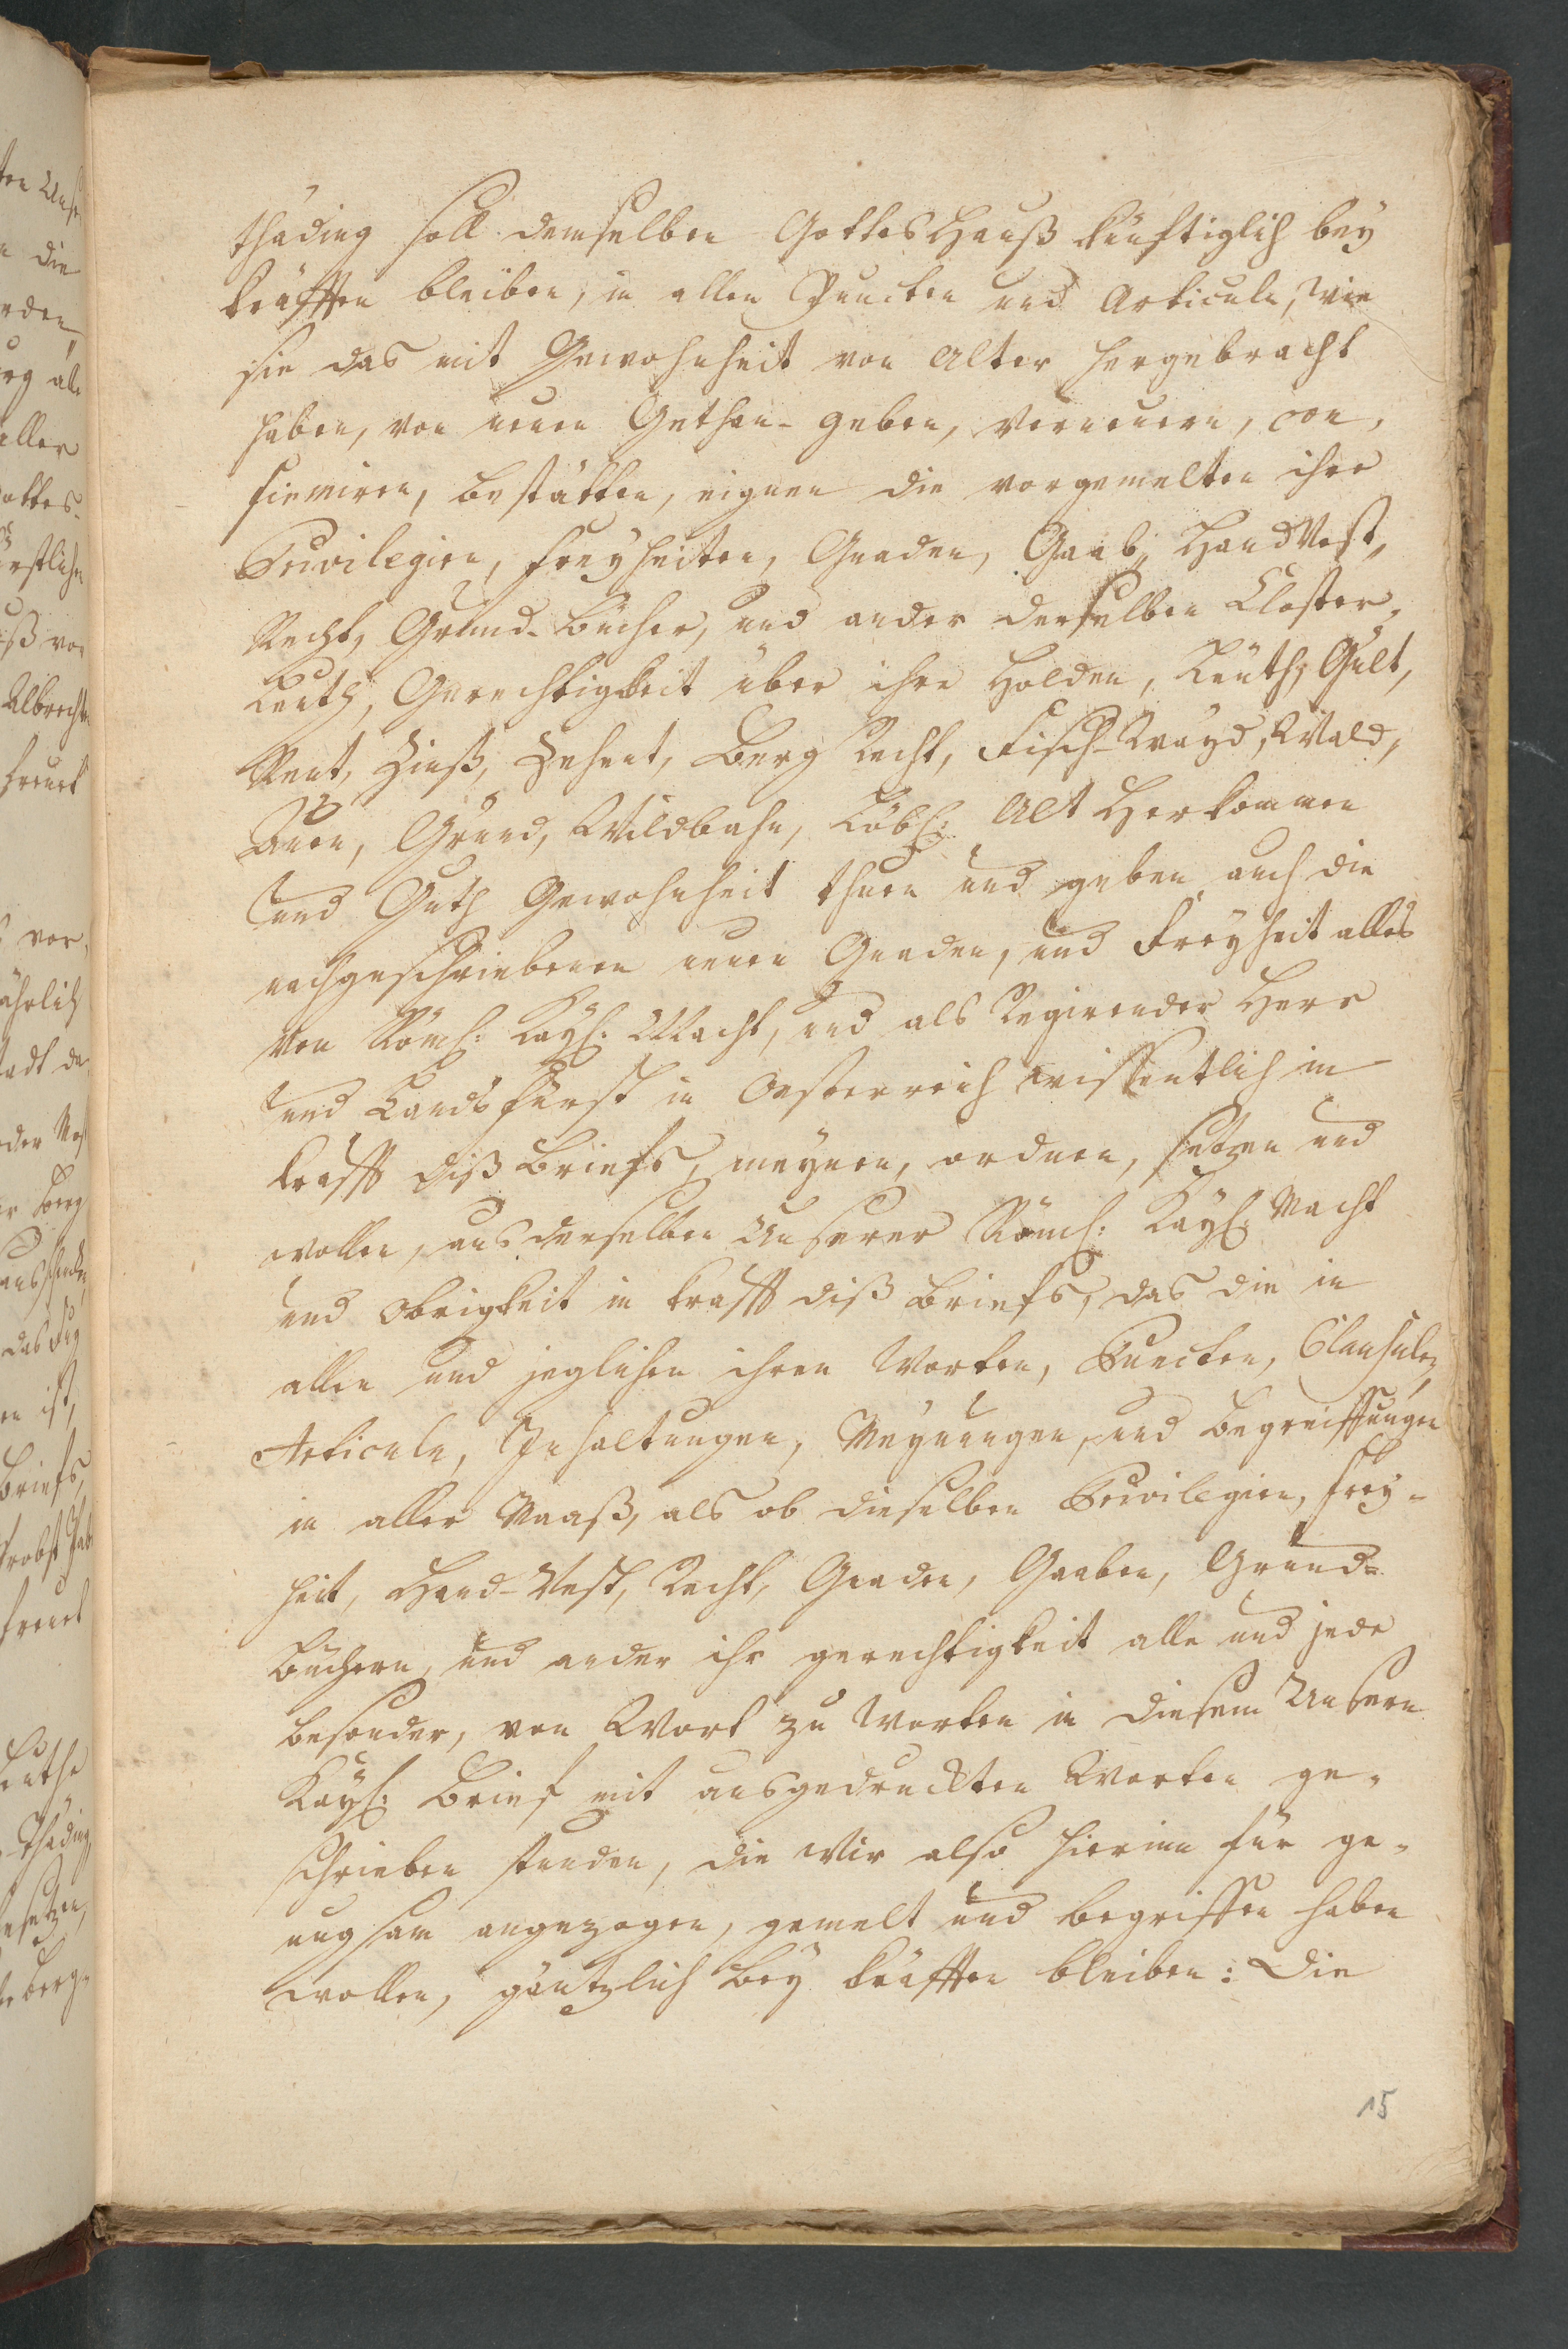 thäding soll demselben GottesHauß künftiglich bey
kräfften bleiben, in allen Puncten und Articuln, wie
sie das mit Gewohnheit von Alter hergebracht
haben, von neuen Gethan- geben, verneuern, con,
firmiren, bestätten, eignen die vorgemelten ihre
Privilegien, Freyheiten, Gnaden, Gaab, HandVest,
Recht, Grund-bücher, und ander derselben Closter,
Leuth, Gerechtigkeit über ihre Holden, Leuth, Gült,
Rent, Zinß, Zehent, Berg Recht, Fisch-Wayd, Wald,
Auen, Gründ, Wildbahn, Löbl: Alt Herkommen
und Guth Gewohnheit thuen und geben auch die
nachgeschriebenen neuen Gnaden, und Freyheit alles
von Römh: Kayh: Macht, und als Regierender Herr
und Landsfürst in Oesterreich wissentlich in
krafft diß briefs, meynen, ordnen, setzen und
wollen, aus derselben Unserer Römh: Kayh: Macht
und Obrigkeit in krafft diß briefs, das die in
allen und jeglichen ihren Worten, Puncten, Clausulen,
Articuln, Inhaltungen, Meynungen, und begreiffungen
in aller Maaß, als ob dieselben Privilegien, Frey-
heit, Hand-Vest, Recht, Gnaden, Gaaben, Grund-
büchern, und ander ihr gerechtigkeit alle und jede
besonder, von Wort zu Worten in diesem Unsern
Kayh: brief mit ausgedruckten Worten ge-
schrieben stunden, die Wir also hierinn für ge-
nugsam angezogen, gemelt und begriffen haben
wollen, gäntzlich bey kräfften bleiben: Die
15